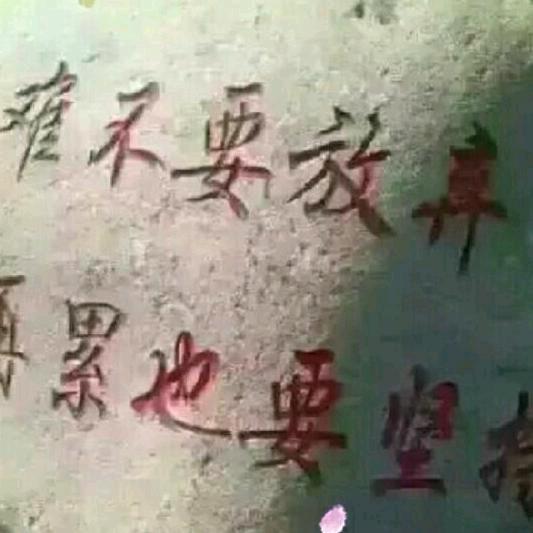 难不要放弃
再累也要坚持